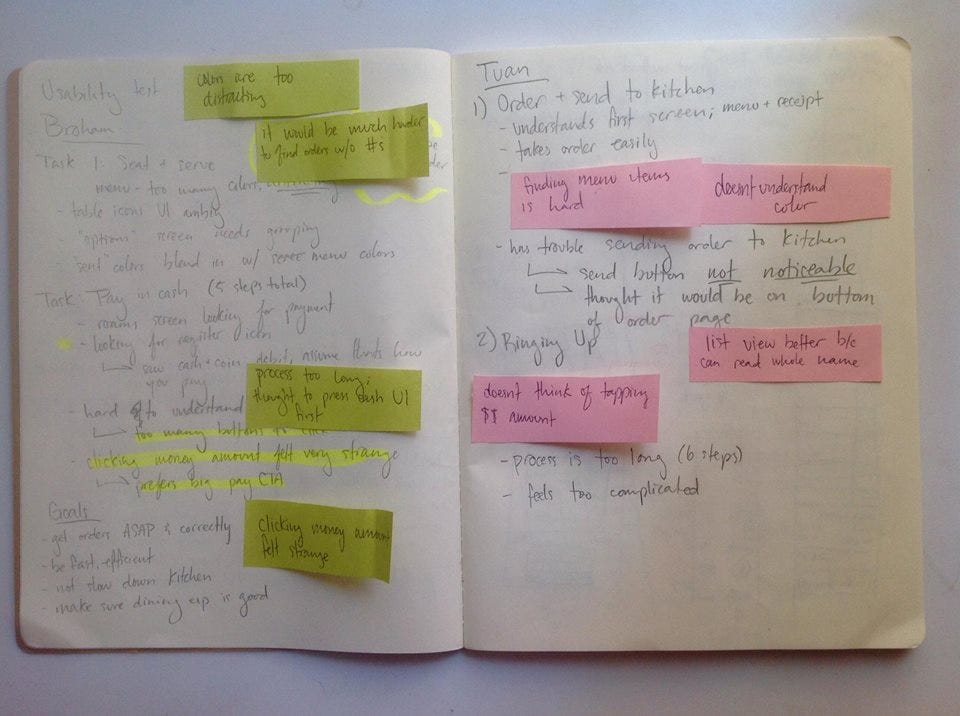 Usability test
colors are too
distracting
Broham
it would be much harder
to find orders w/o #s
Task 1: Seat + serve
menu - too many colors,
- table icons UI ambig
- "options" screen needs grouping
- "sent" colors blend in w/ menu colors
Task: Pay in cash (5 steps total)
- roams screen looking for payment
- looking for register icon
saw cash + coin debit, assume thats how
you pay
process too long;
thought to press cash UI
first
- hard to understand
too many buttons to click
- clicking money amount felt very strange
prefers big pay CTA
Goals
- get orders ASAP & correctly
- be fast, efficient
- not slow down kitchen
- make sure dining exp is good
clicking money amount
felt strange
Tuan
1) Order + send to kitchen
- understands first screen; menu + receipt
- takes order easily
-
finding menu items
is hard
doesnt understand
color
- has trouble sending order to kitchen
send button not noticeable
thought it would be on bottom
of order page
2) Ringing Up
list view better b/c
can read whole name
doesnt think of tapping
$$ amount
- process is too long (6 steps)
- feels too complicated